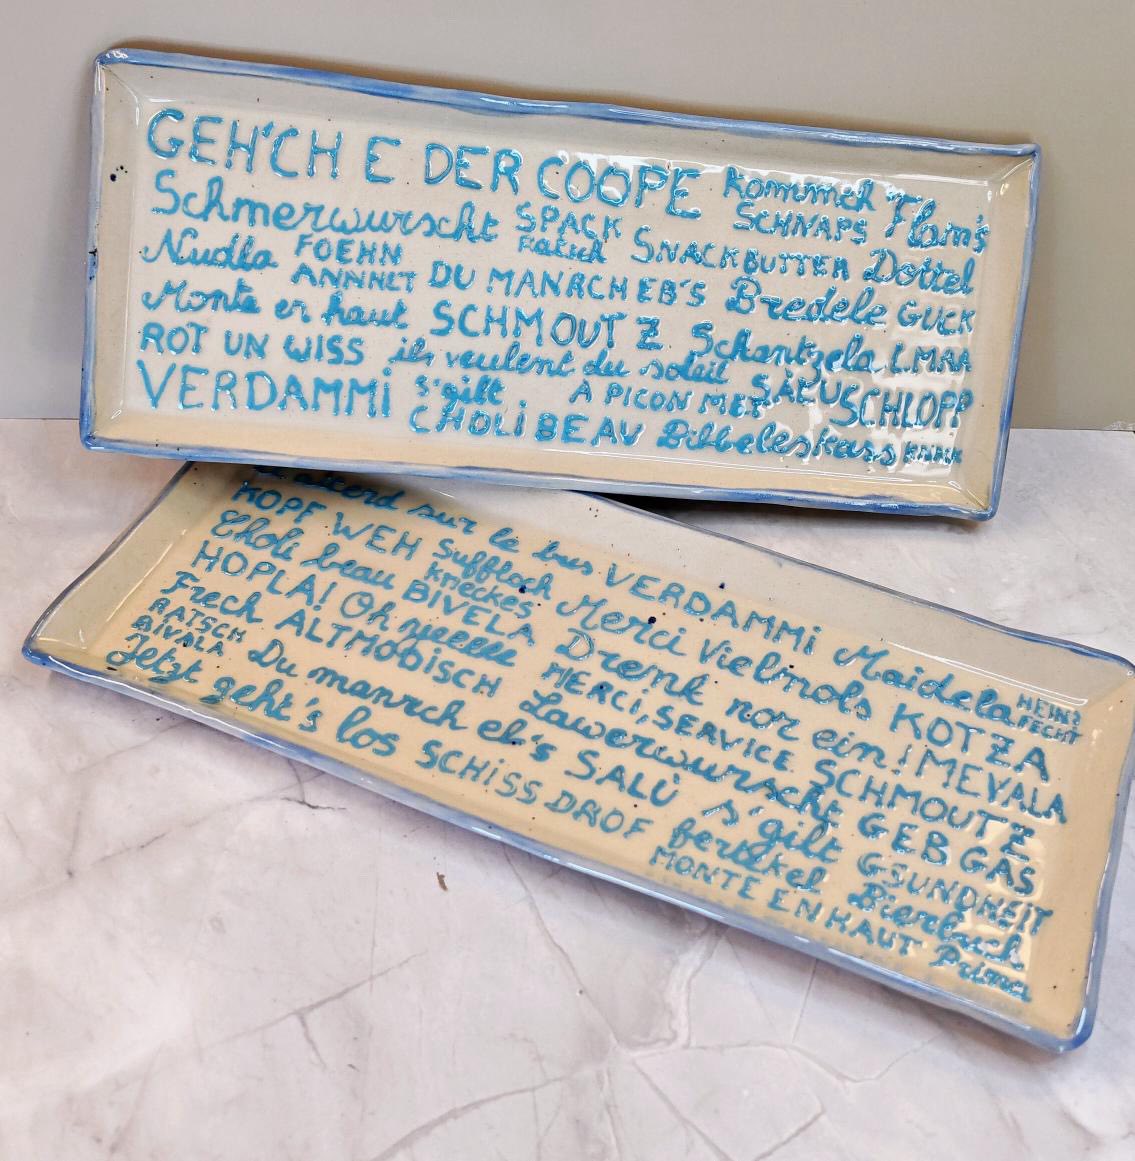 GEH'CH E DER COOPE Kommmch Flam's
Schmerwurscht SPACK SCHNAPS
Nudla FOEHN Ratsch SNACKBUTTER Dottel
ANNNET DU MANRCH EB'S Bredele GUCK
Monte en haut SCHMOUTZ Schantzela LMAA
ROT UN WISS ils veulent du soleil SALU SCHLOPP
VERDAMMi s'gilt A PICON MET
CHOLi BEAU Bibbeleskass
sur le bus VERDAMMi Maidela HEIN?
KOPF WEH Suffloch Merci Vielmols KOTZA FECHT
Choli beau KNECKES Drenk nor ein! MEVALA
HOPLA! Oh yeelle BIVELA MERCI, SERVICE SCHMOUTZ
Frech ALTMODISCH Lawerwurscht GEB GAS
RATSCH Du manrch eb's SALÜ s'gilt GSUNDHEIT
BIVALA
Jetzt geht's los SCHiSS DROF fertekel Bierbuch
MONTE EN HAUT Prima